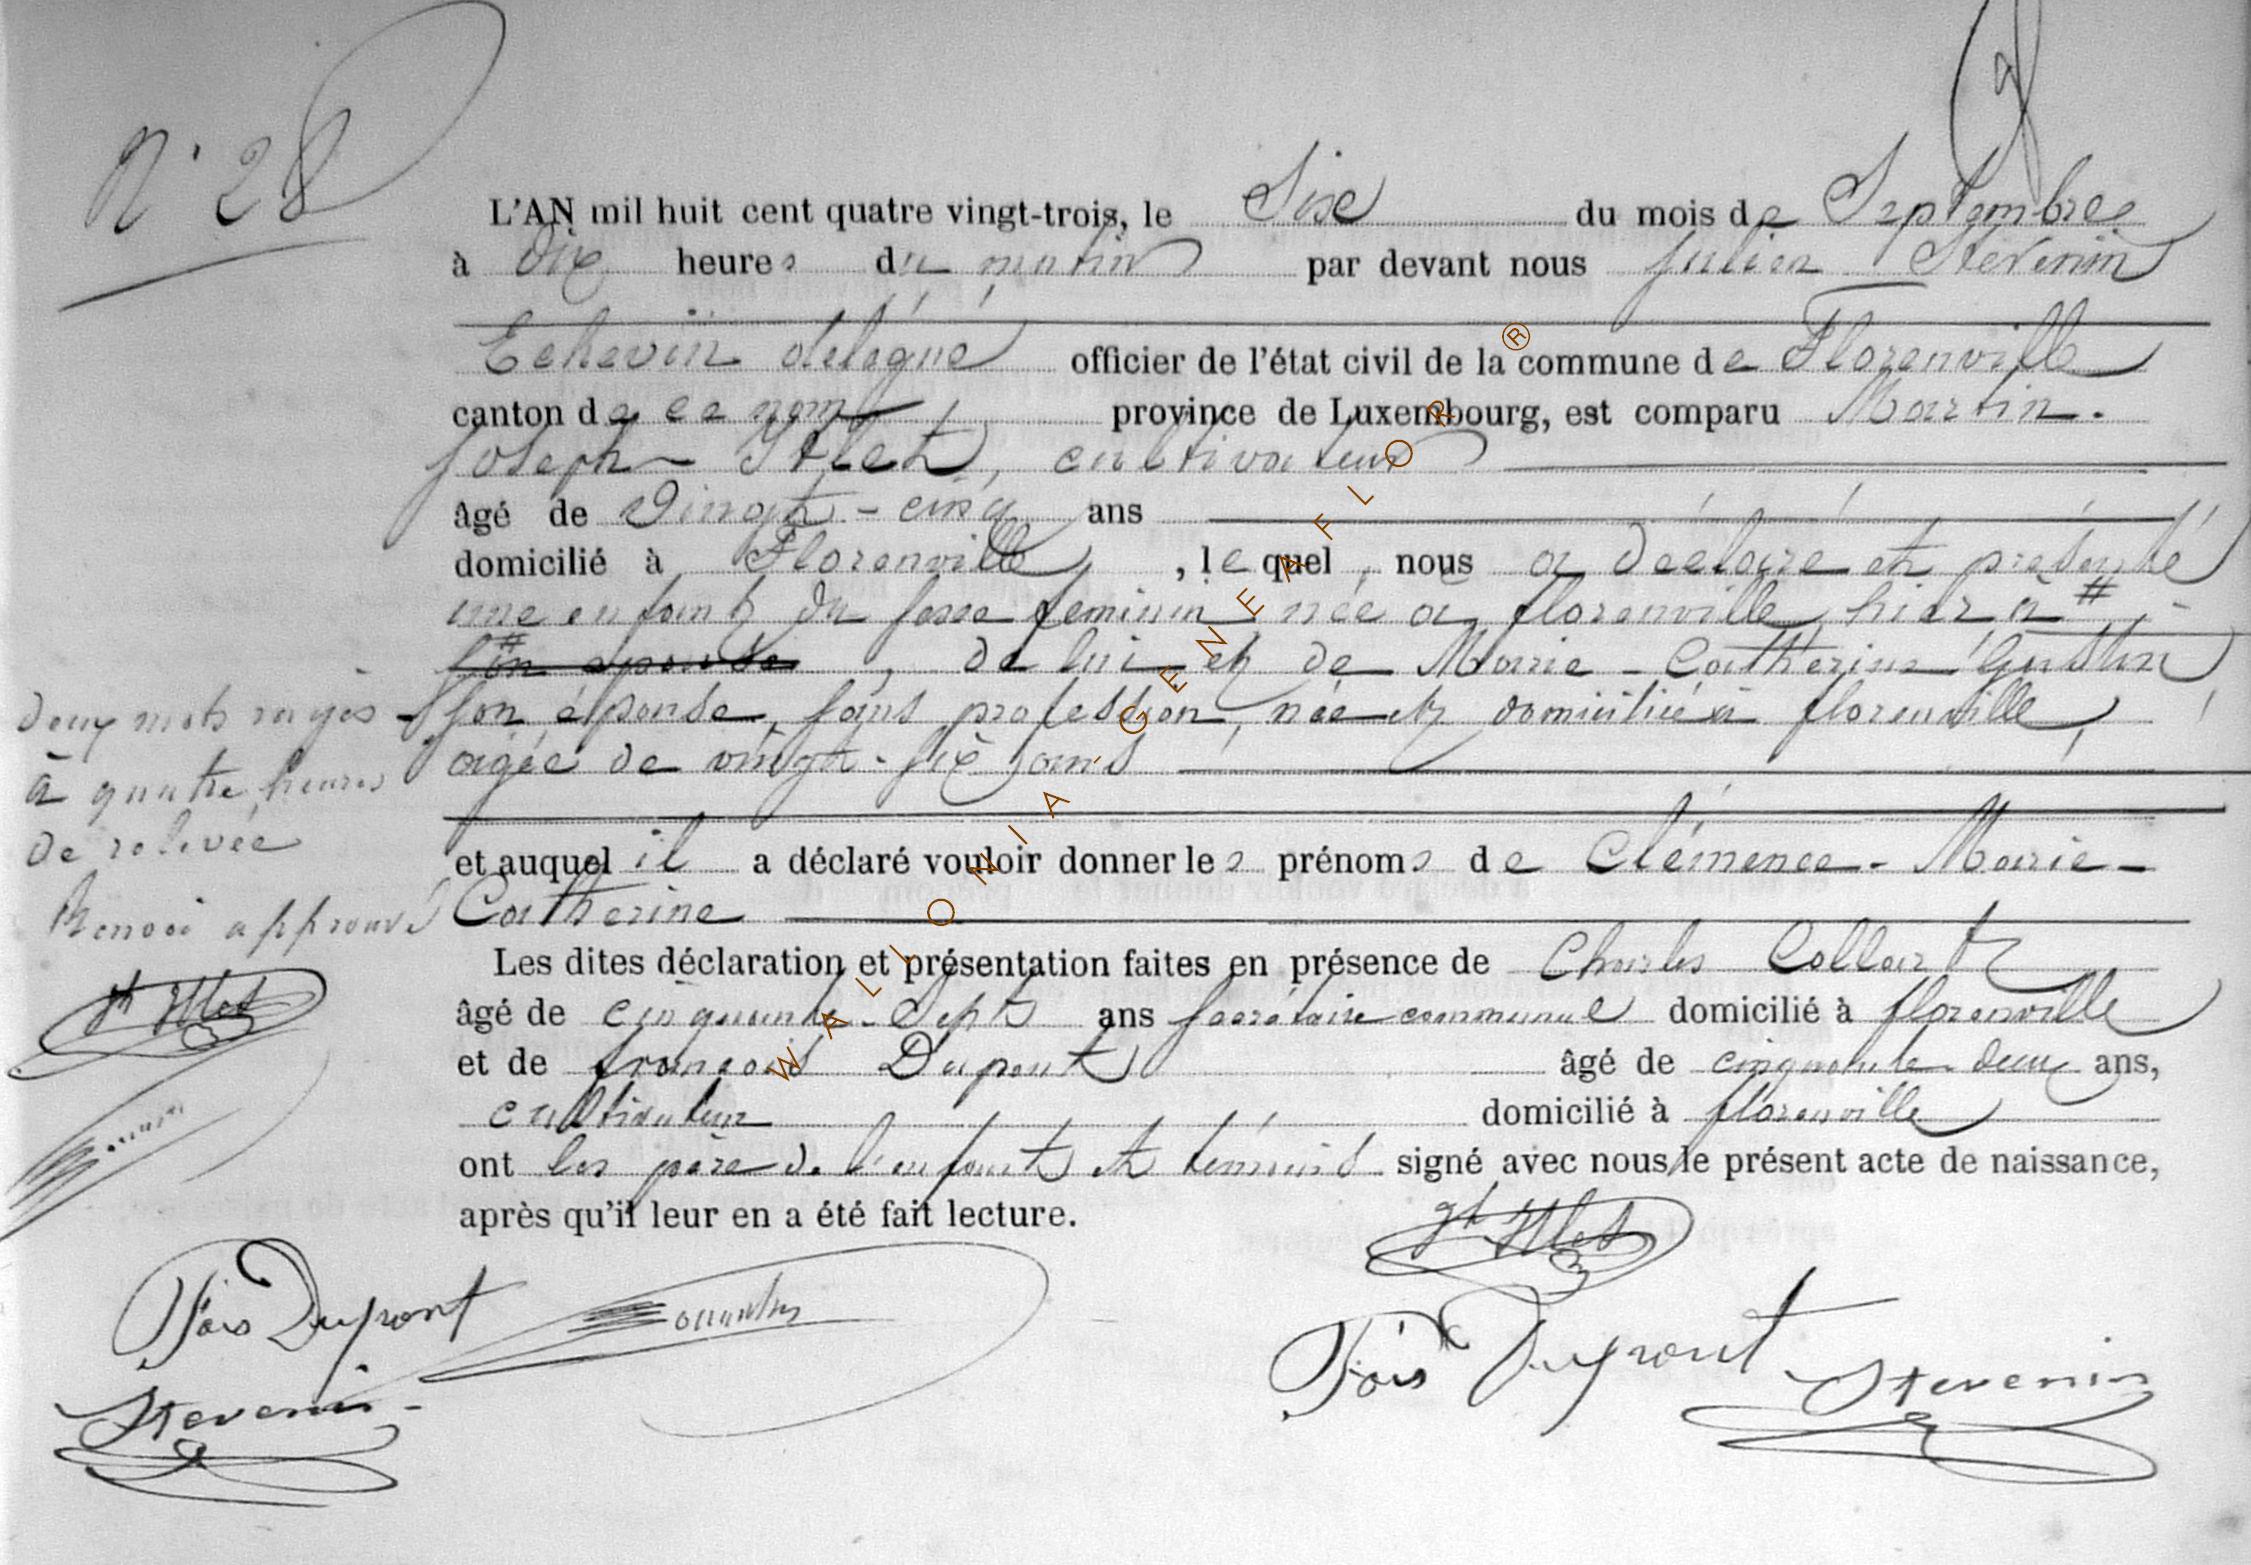 N° 28
L'AN mil huit cent quatre vingt-trois, le Six du mois de Septembre
à dix heures du matin par devant nous Julien Stévenin
Echevin délégué officier de l'état civil de la commune de Florenville
canton de ce nom province de Luxembourg, est comparu Martin-
Joseph cultivateur
âgé de Vingt-cinq ans
domicilié à Florenville, lequel, nous a déclaré et présenté
une enfant du sexe féminin née à florenville hier à #
# son épouse, de lui et de Marie-Catherine Gustin
son épouse, sans profession, née et domiciliée à florenville,
âgée de vingt-six ans
et auquel il a déclaré vouloir donner les prénoms de Clémence-Marie-
Catherine
Les dites déclaration et présentation faites en présence de Charles Collart
âgé de cinquante-Sept ans secrétaire communal domicilié à florenville
et de françois Dupont âgé de cinquante deux ans,
cultivateur domicilié à florenville
ont les père de l'enfant et témoins signé avec nous le présent acte de naissance,
après qu'il leur en a été fait lecture.
deux mots rayés
à quatre heures
de relevée
Renvoi approuvé
Fois Dupont
Stevenin
Fois Dupont
Stevenin
WALLONIA-GENEAFLOR ®